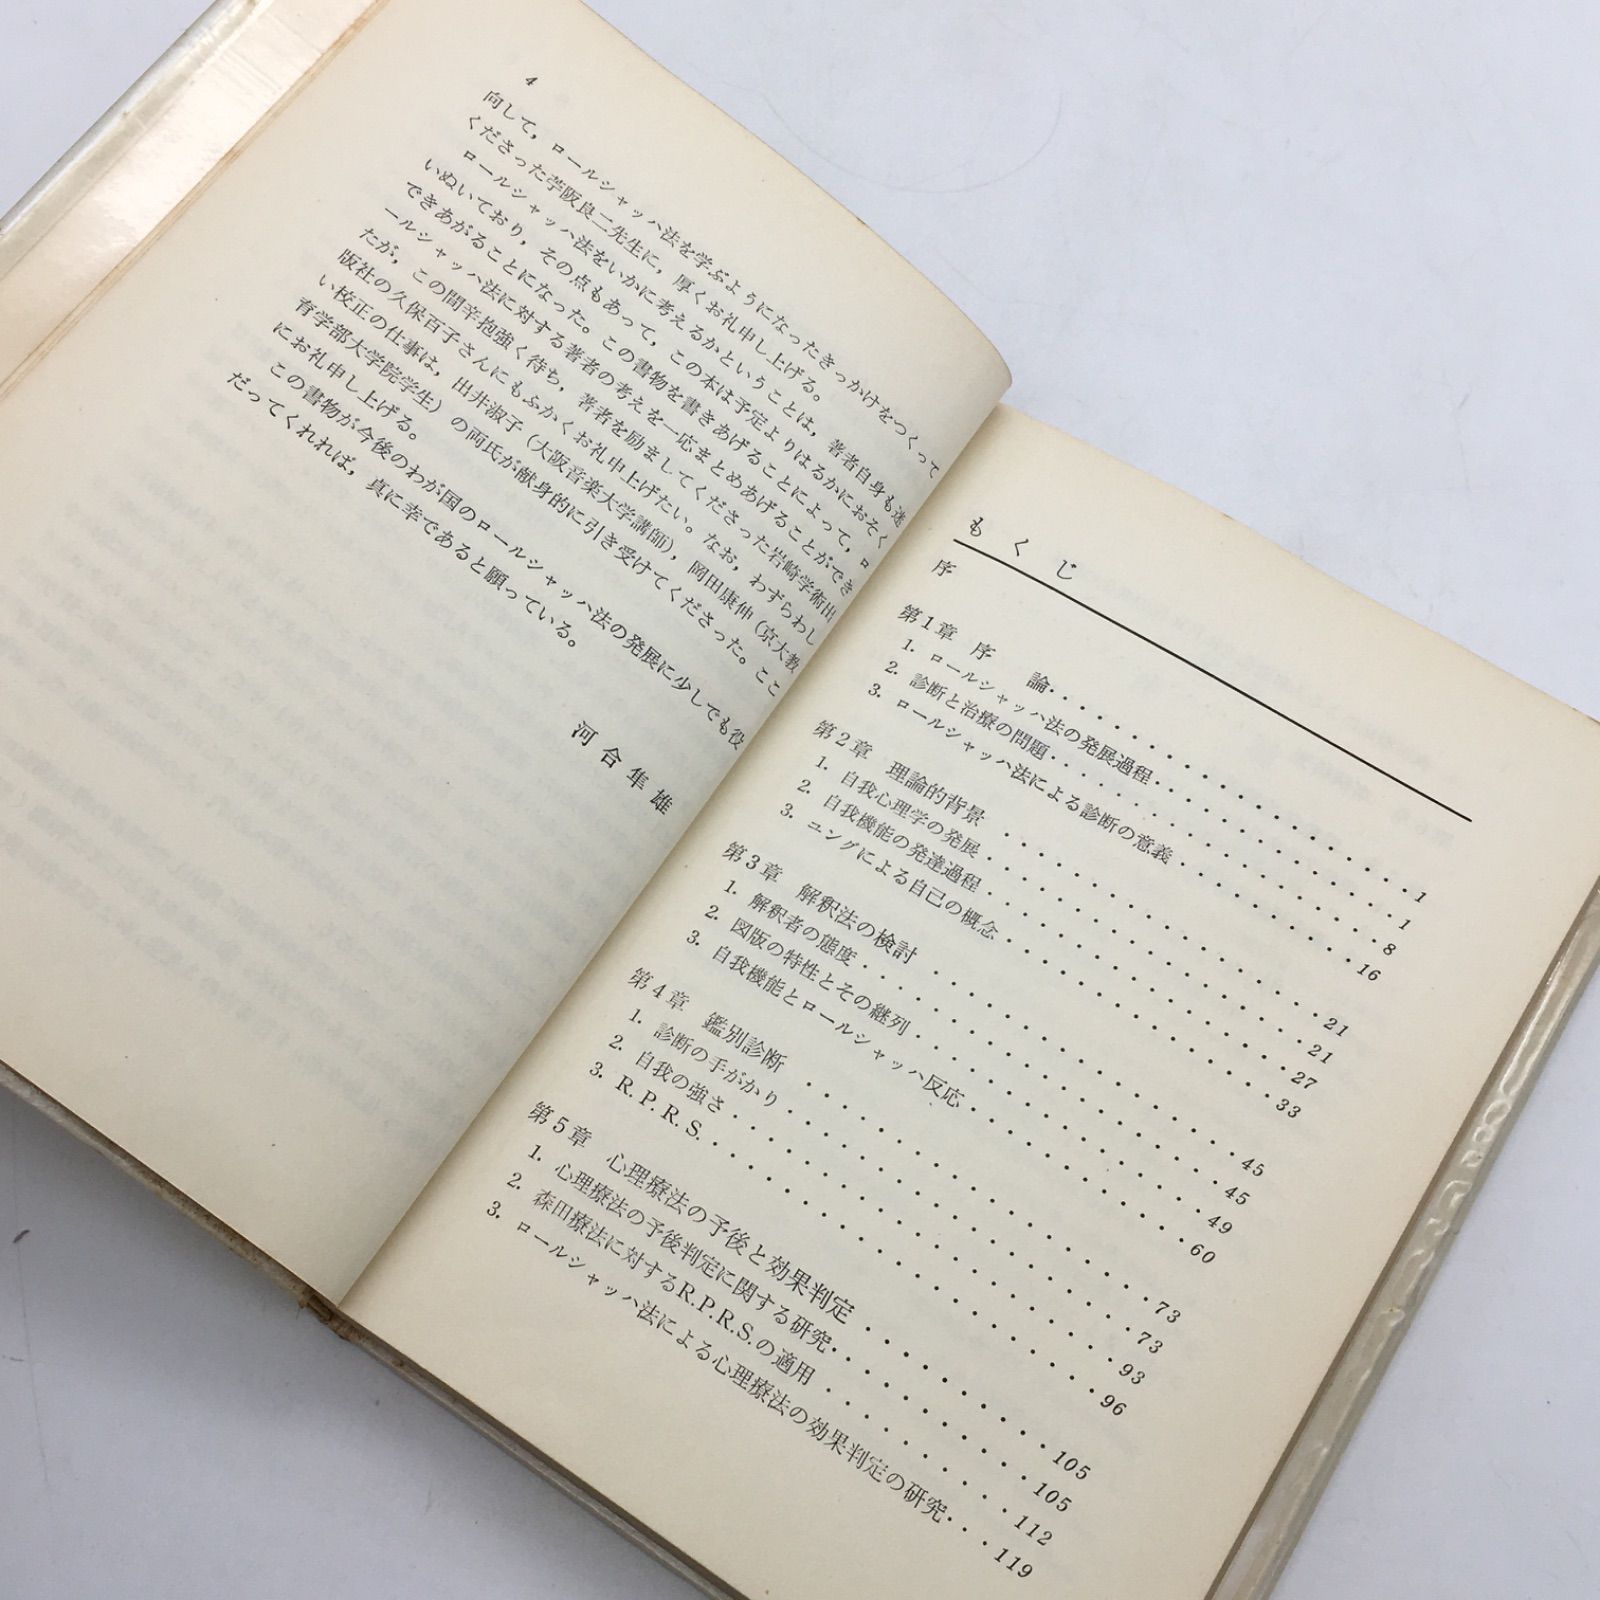 4
向して，ロールシャッハ法を学ぶようになったきっかけをつくって
くださった苧阪良二先生に，厚くお礼申し上げる。
ロールシャッハ法をいかに考えるかということは，著者自身も迷
いぬいており，その点もあって，この本は予定よりはるかにおそく
できあがることになった。この書物を書きあげることによって，ロ
ールシャッハ法に対する著者の考えを一応まとめあげることができ
たが，この間辛抱強く待ち，著者を励ましてくださった岩崎学術出
版社の久保百子さんにもふかくお礼申上げたい。なお，わずらわし
い校正の仕事は，出井淑子（大阪音楽大学講師），岡田康伸（京大教
育学部大学院学生）の両氏が献身的に引き受けてくださった。ここ
にお礼申し上げる。
この書物が今後のわが国のロールシャッハ法の発展に少しでも役
だってくれれば，真に幸であると願っている。
河合隼雄
もくじ
序
第1章 序 論 1
1. ロールシャッハ法の発展過程 1
2. 診断と治療の問題 8
3. ロールシャッハ法による診断の意義 16
第2章 理論的背景 21
1. 自我心理学の発展 21
2. 自我機能の発達過程 27
3. ユングによる自己の概念 33
第3章 解釈法の検討 45
1. 解釈者の態度 45
2. 図版の特性とその継列 49
3. 自我機能とロールシャッハ反応 60
第4章 鑑別診断 73
1. 診断の手がかり 73
2. 自我の強さ 93
3. R. P. R. S. 96
第5章 心理療法の予後と効果判定 105
1. 心理療法の予後判定に関する研究 105
2. 森田療法に対するR.P.R.S.の適用 112
3. ロールシャッハ法による心理療法の効果判定の研究 119